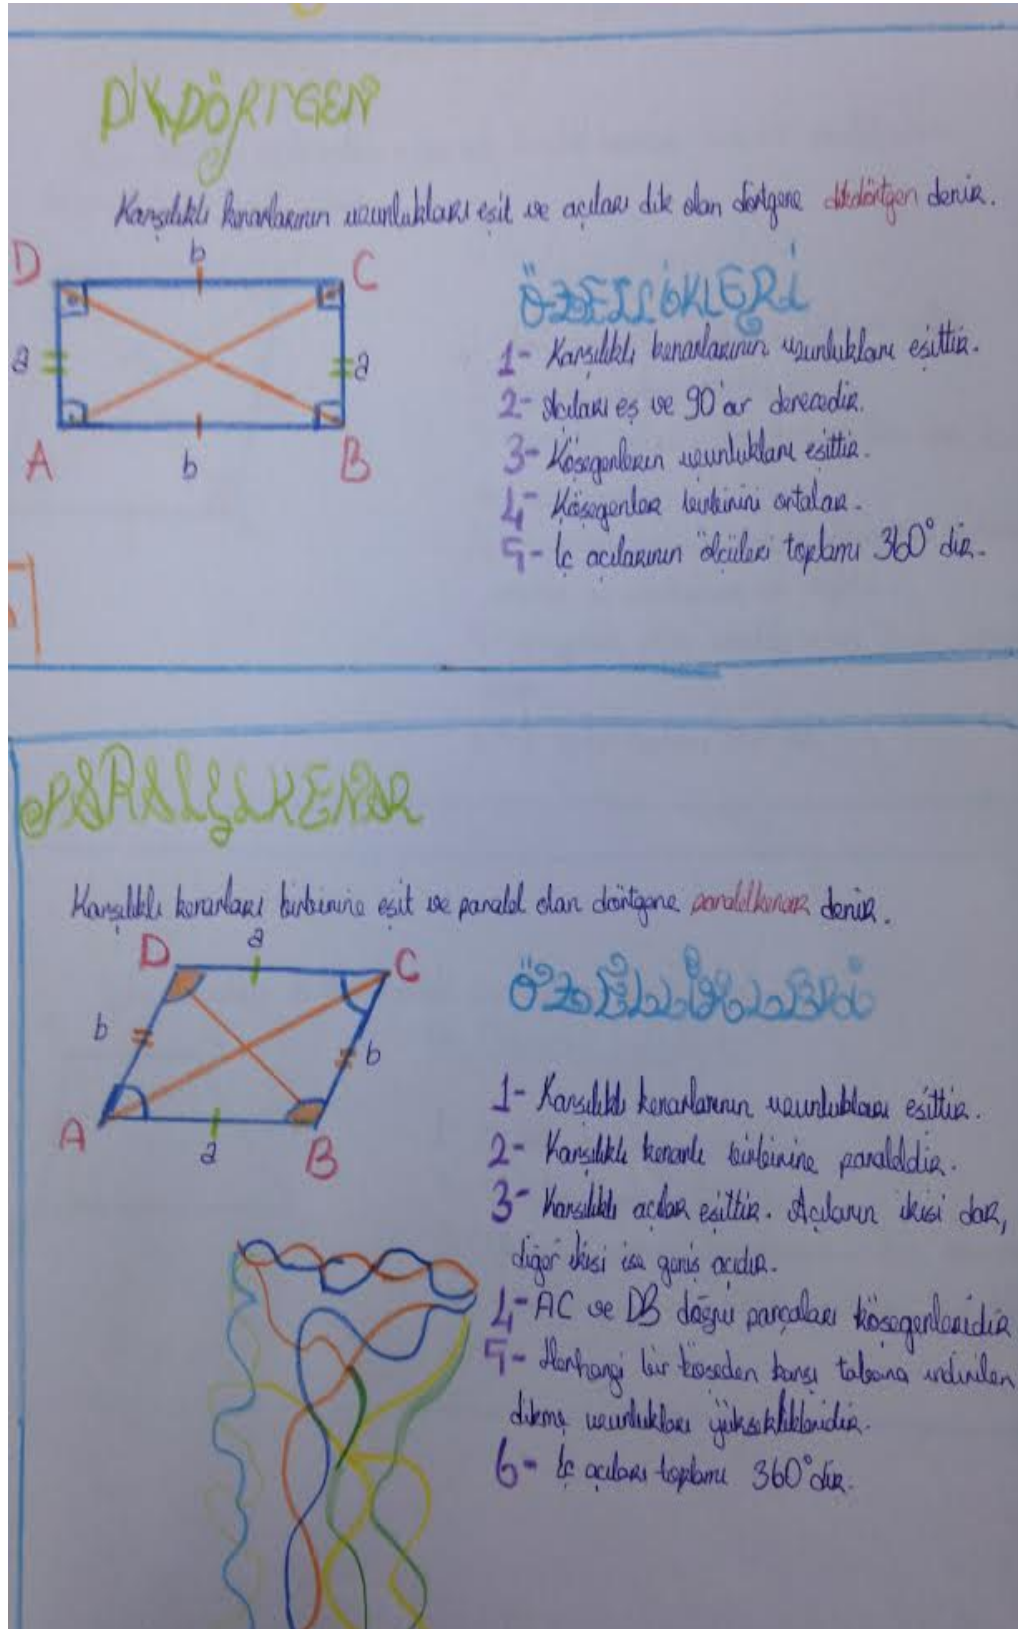 DİKDÖRTGEN
Karşılıklı kenarlarının uzunlukları eşit ve açıları dik olan dörtgene dikdörtgen denir.
D b C
a a
A b B
ÖZELLİKLERİ
1- Karşılıklı kenarlarının uzunlukları eşittir.
2- Açıları eş ve 90'ar derecedir.
3- Köşegenlerin uzunlukları eşittir.
4- Köşegenler birbirini ortalar.
5- İç açılarının ölçüleri toplamı 360° dir.
PARALELKENAR
Karşılıklı kenarları birbirine eşit ve paralel olan dörtgene paralelkenar denir.
D a C
b b
A a B
ÖZELLİKLERİ
1- Karşılıklı kenarlarının uzunlukları eşittir.
2- Karşılıklı kenarlı birbirine paraleldir.
3- Karşılıklı açılar eşittir. Açıların ikisi dar,
diğer ikisi ise geniş açıdır.
4- AC ve DB doğru parçaları köşegenleridir
5- Herhangi bir köşeden karşı tabana indirilen
dikme uzunlukları yükseklikleridir.
6- İç açıları toplamı 360°dir.